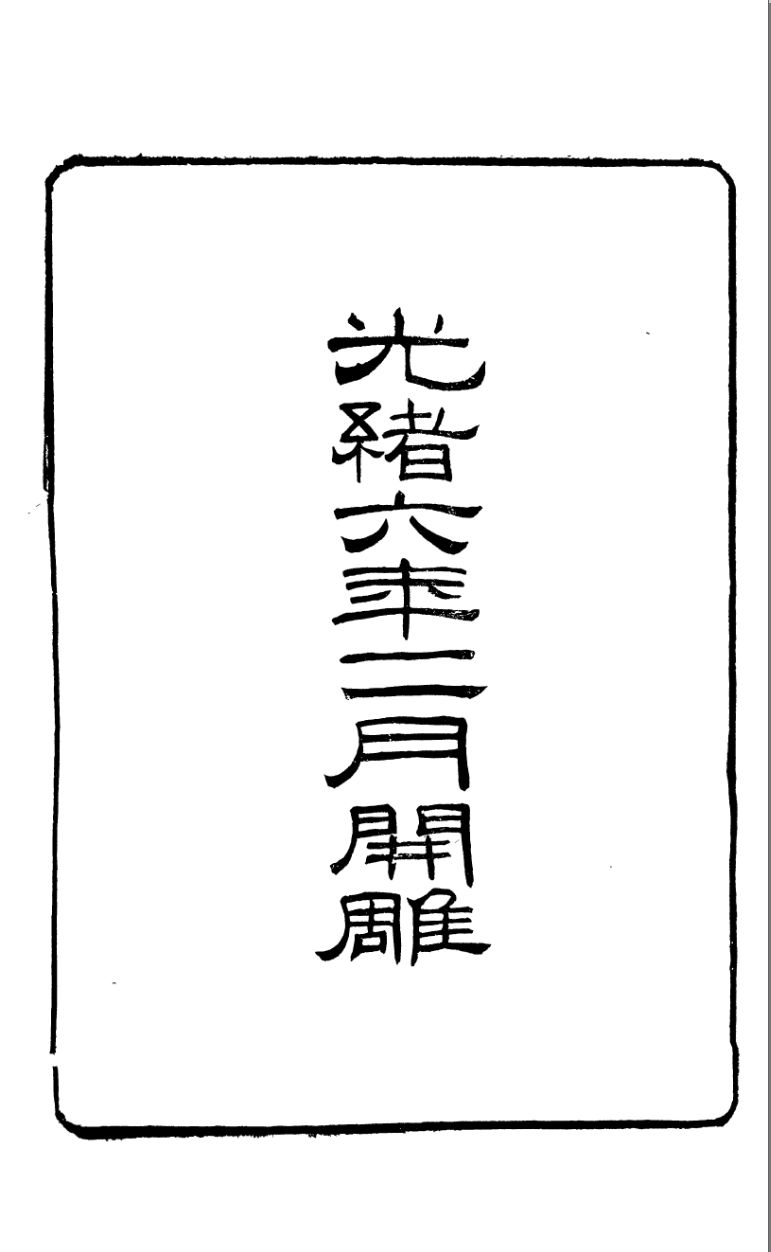 光緒六年二月開雕